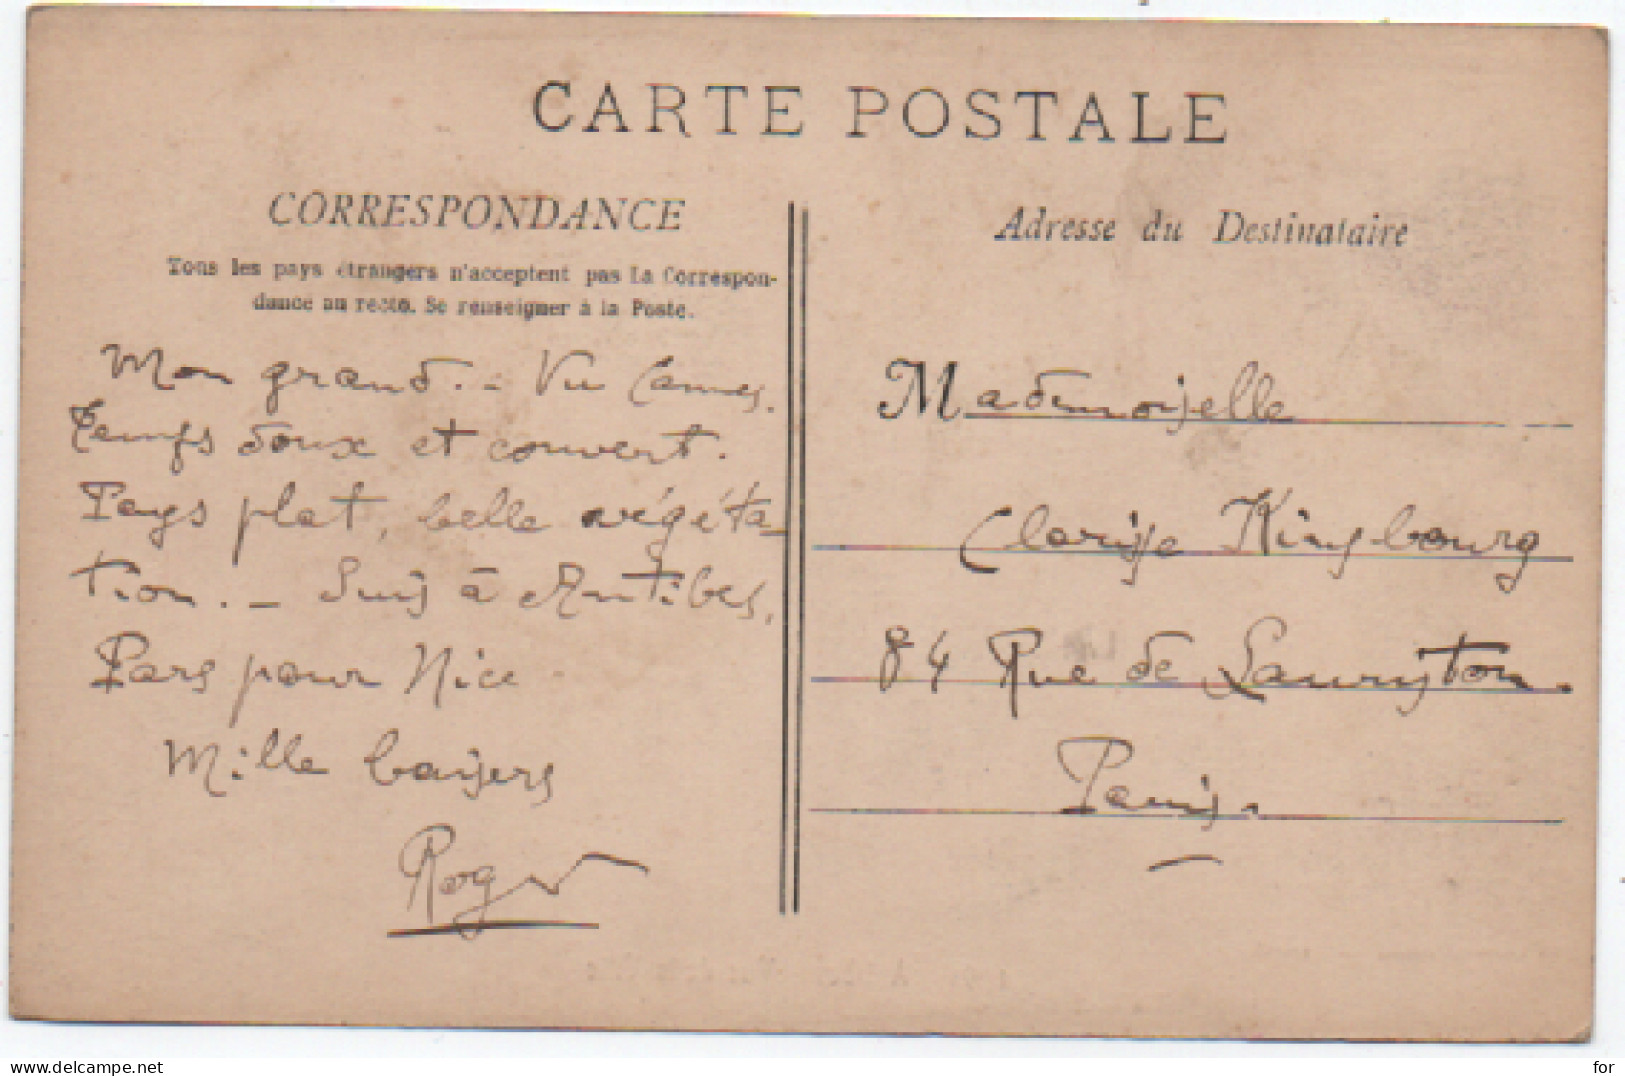 CARTE POSTALE
CORRESPONDANCE
Tous les pays étrangers n'acceptent pas La Correspon-
dance au recto. Se renseigner à la Poste.
Mon grand. - Vu Cannes.
Temps doux et couvert.
Pays plat, belle végéta-
tion. - Suis à Antibes,
Pars pour Nice
Mille baisers
Roger
Adresse du Destinataire
Mademoiselle
Clarisse Kinsbourg
84 Rue de Lauriston.
Paris.
www.delcampe.net
for